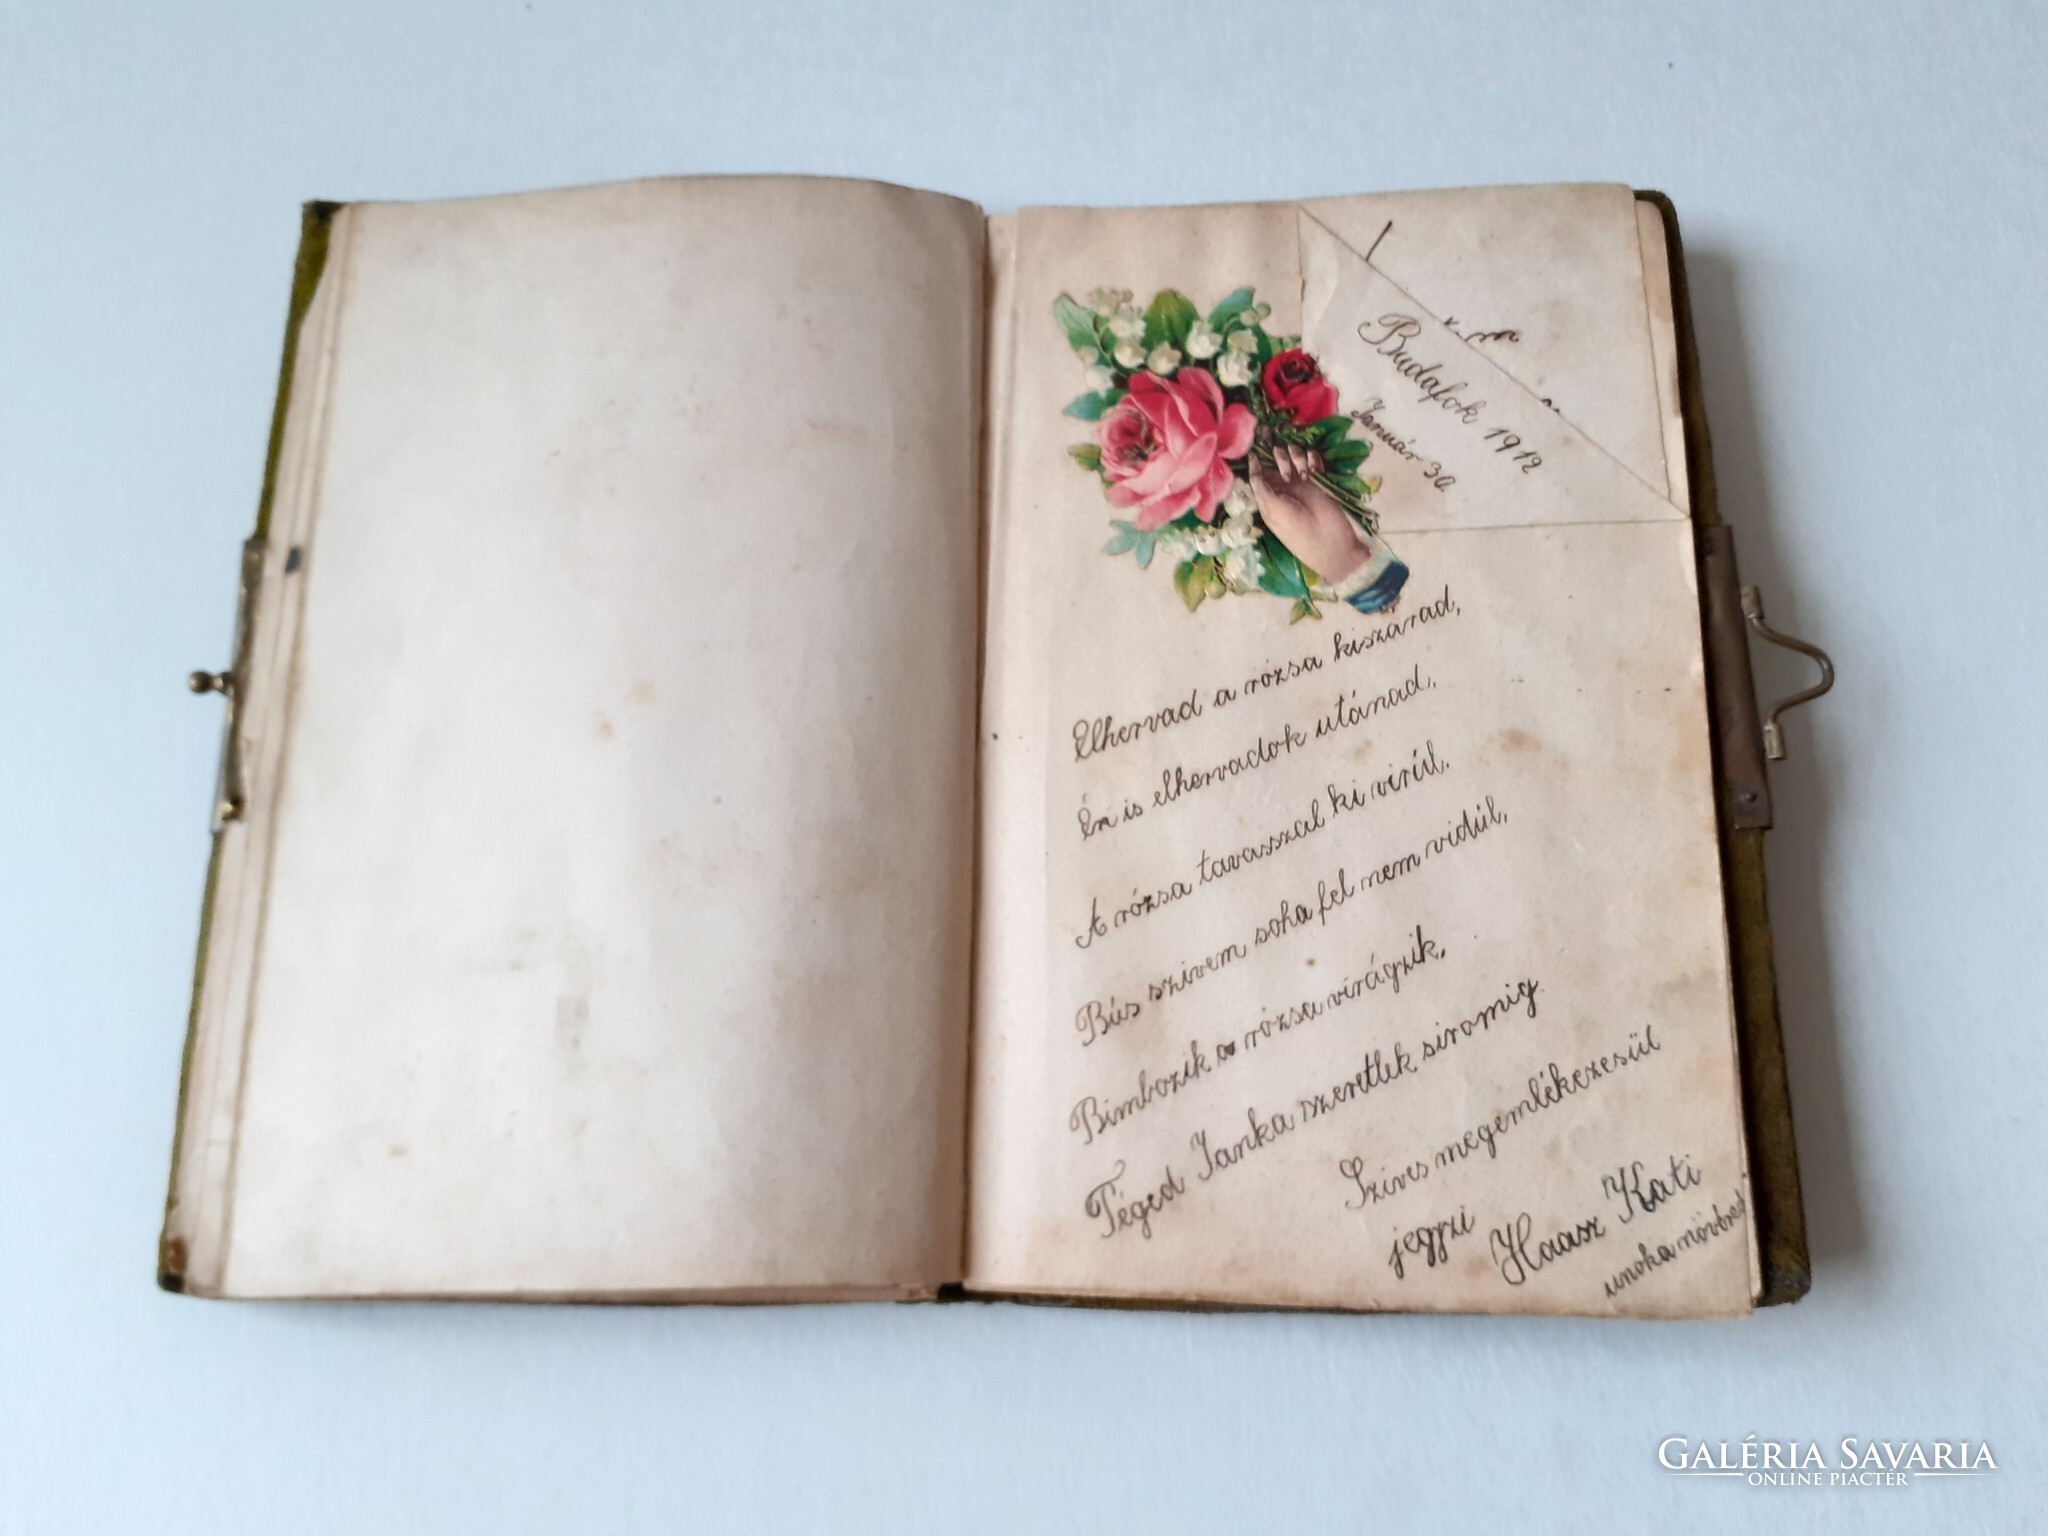 Budafok 1912
Január 30
Elhervad a rózsa kiszárad,
Én is elhervadok utánad,
A rózsa tavasszal ki virúl.
Bús szivem soha fel nem vidúl,
Bimbozik a rózsa virágzik,
Téged Janka szeretlek siromig.
Szives megemlékezesül
jegyzi Haasz Kati
unoka növéred
GALÉRIA SAVARIA
ONLINE PIACTÉR